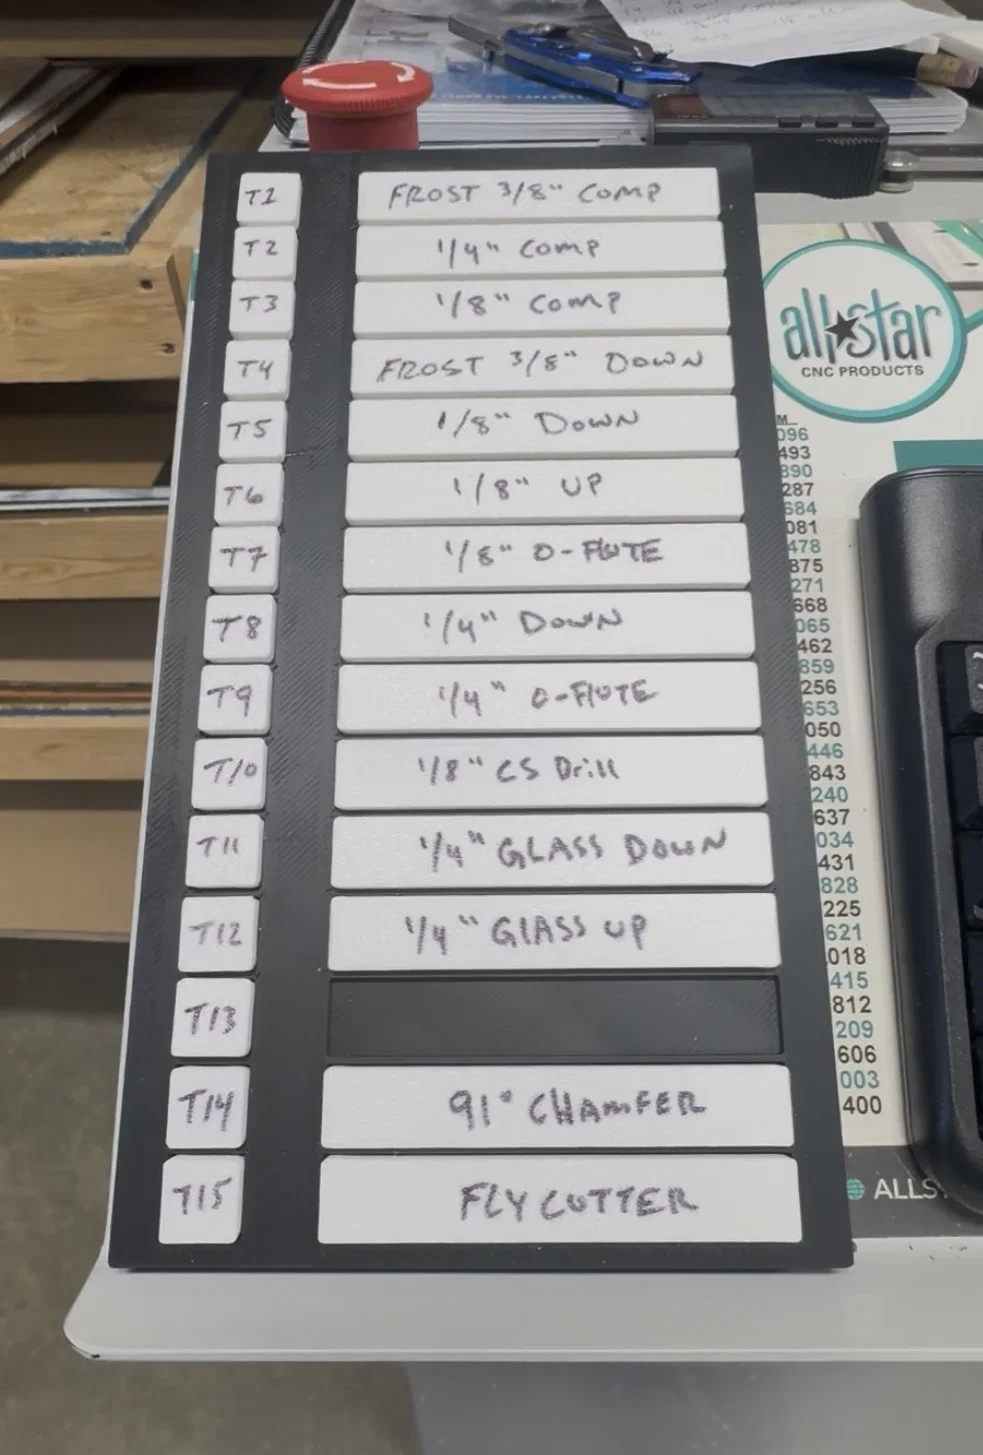 T1 FROST 3/8" COMP
T2 1/4" COMP
T3 1/8" COMP
T4 FROST 3/8" DOWN
T5 1/8" DOWN
T6 1/8" UP
T7 1/8" O-FLUTE
T8 1/4" DOWN
T9 1/4" O-FLUTE
T10 1/8" CS Drill
T11 1/4" GLASS DOWN
T12 1/4" GLASS UP
T13
T14 91° CHAMFER
T15 FLY CUTTER
allstar
CNC PRODUCTS
096
493
890
287
684
081
478
875
271
668
065
462
859
256
653
050
446
843
240
637
034
431
828
225
621
018
415
812
209
606
003
400
ALLS